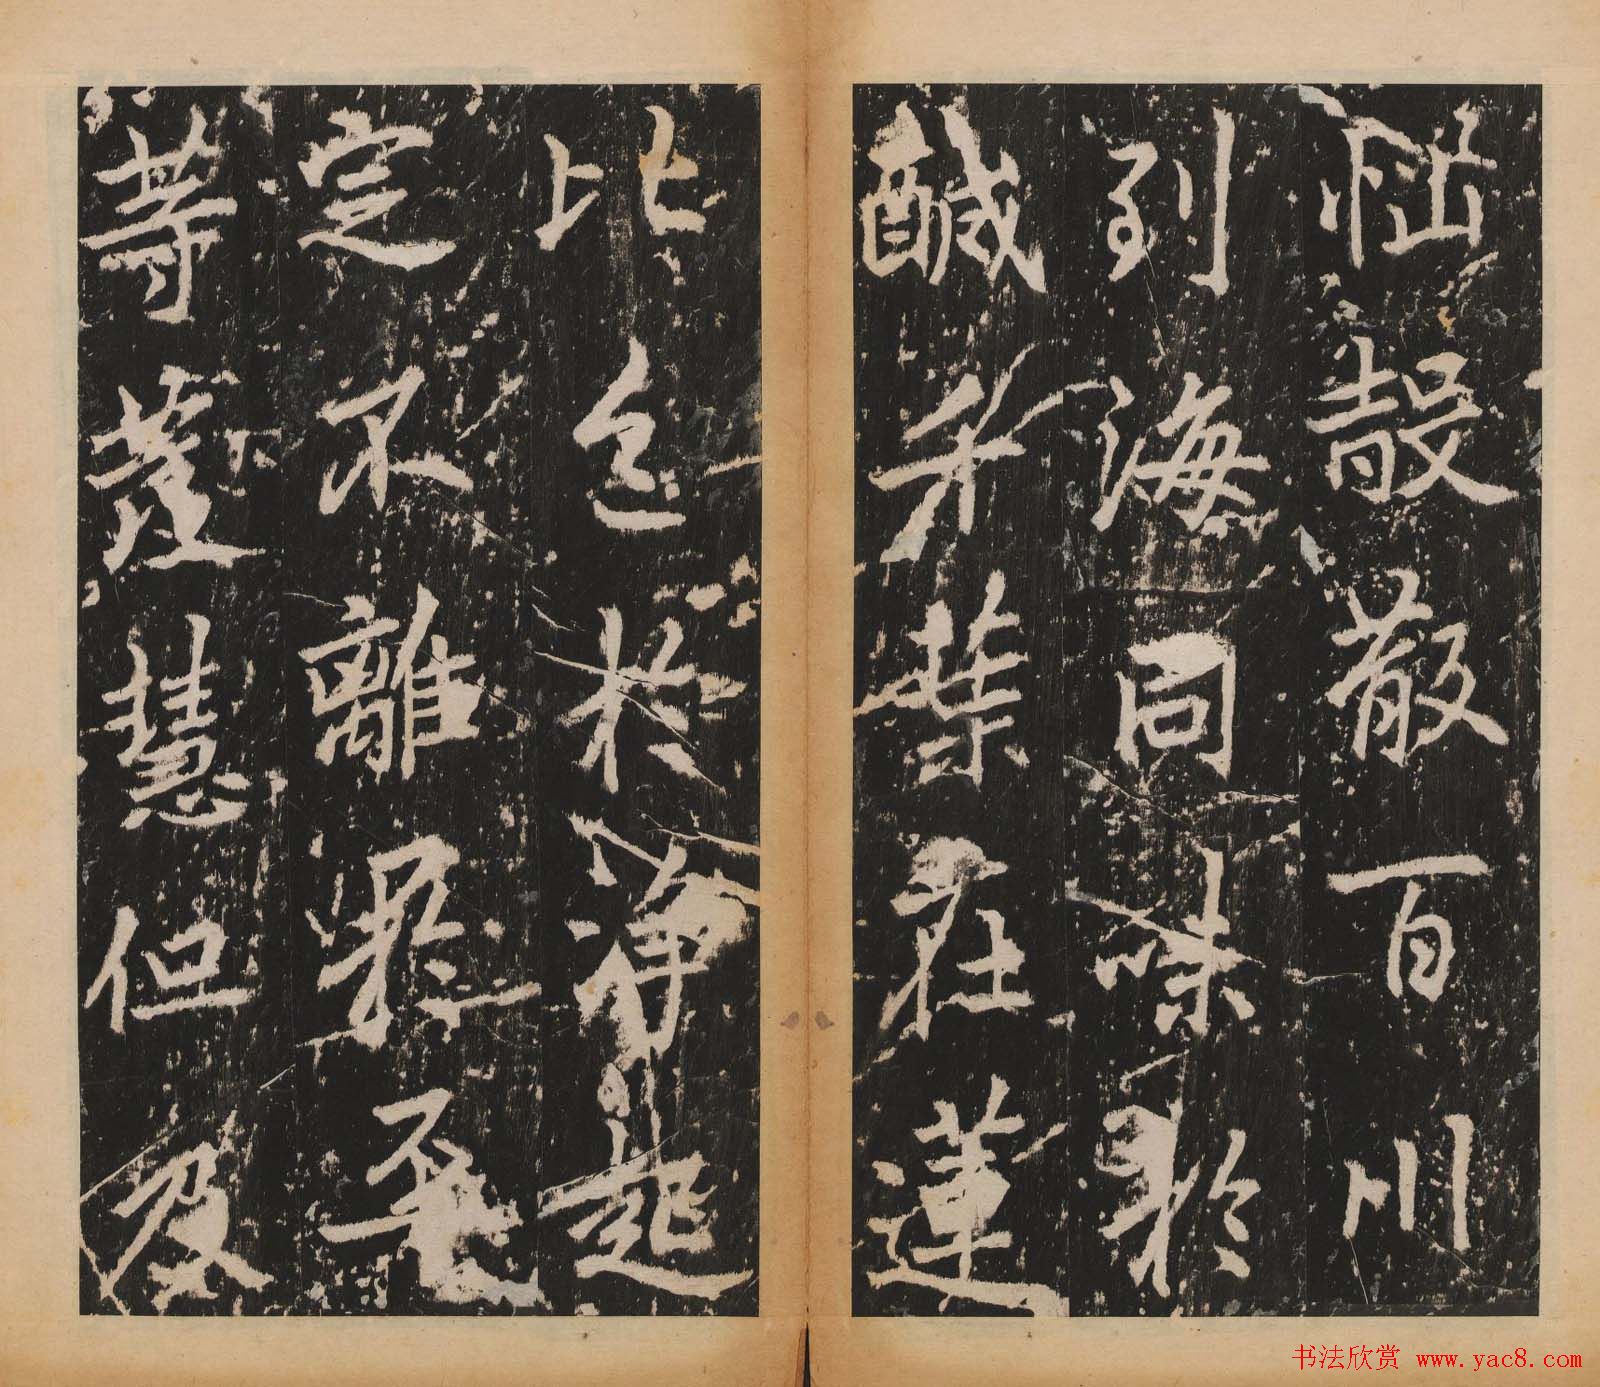 散百川
到海同味於
鹹千葉在蓮
比色於淨起
定不離
等發慧但及
书法欣赏 www.yac8.com